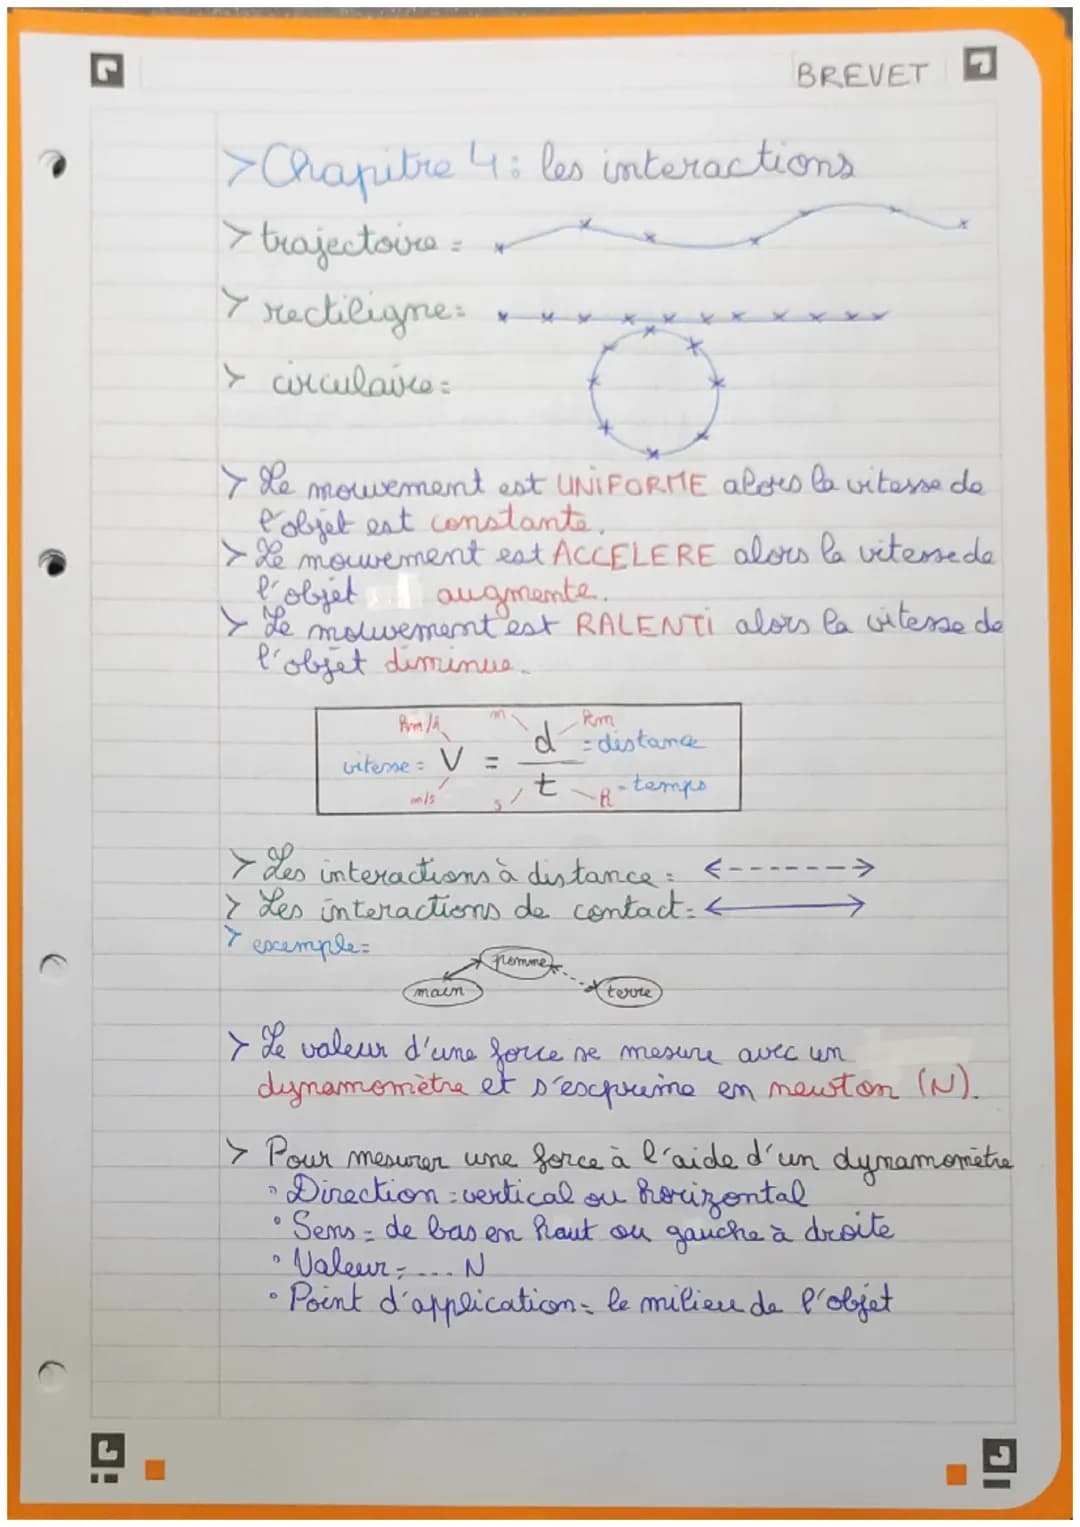 BREVET
> Chapitre 4 : les interactions
> trajectoire =
> rectiligne =
> circulaire =
> Le mouvement est UNIFORME alors la vitesse de
l'objet est constante.
> Le mouvement est ACCELERE alors la vitesse de
l'objet augmente.
> Le mouvement est RALENTI alors la vitesse de
l'objet diminue.
km/h m km
vitesse = V = d = distance
m/s s t h = temps
> Les interactions à distance = <------->
> Les interactions de contact = <———>
> exemple =
pomme
main terre
> Le valeur d'une force se mesure avec un
dynamomètre et s'exprime en newton (N).
> Pour mesurer une force à l'aide d'un dynamomètre
° Direction = vertical ou horizontal
° Sens = de bas en haut ou gauche à droite
° Valeur = .... N
° Point d'application = le milieu de l'objet